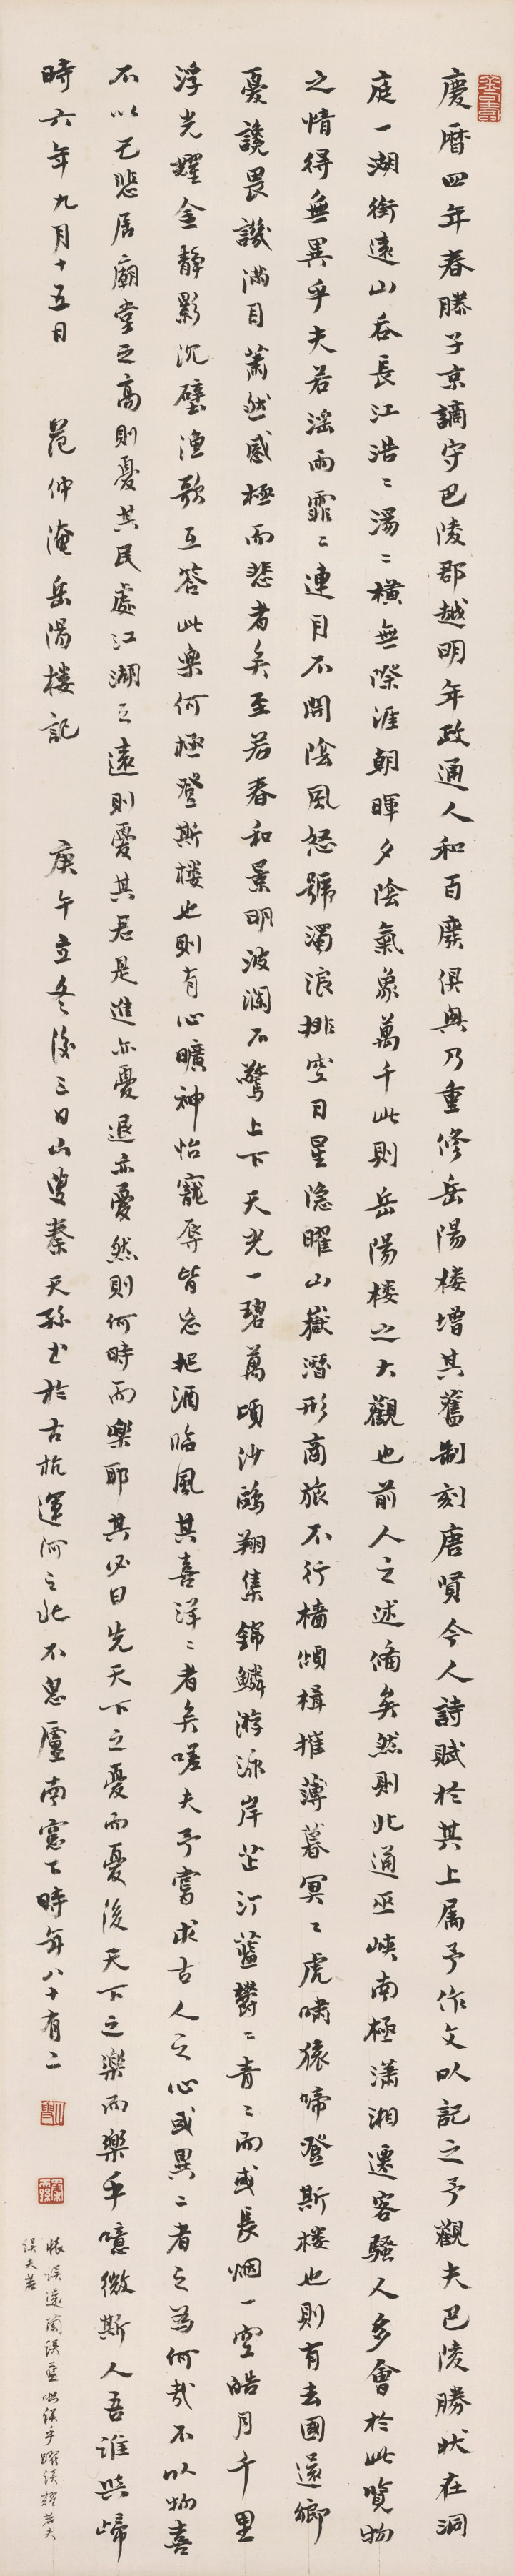 慶曆四年春滕子京謫守巴陵郡越明年政通人和百廢俱興乃重修岳陽楼增其舊制刻唐賢今人詩賦於其上属予作文以記之予觀夫巴陵勝狀在洞
庭一湖銜遠山吞長江浩〻湯〻橫無際涯朝暉夕陰氣象萬千此則岳陽楼之大觀也前人之述備矣然則北通巫峽南極瀟湘遷客騷人多會於此覽物
之情得無異乎夫若滛雨霏〻連月不開陰風怒號濁浪排空日星隐曜山嶽潛形商旅不行檣傾楫摧薄暮冥〻虎嘯猿啼登斯楼也則有去國還鄉
憂讒畏譏滿目蕭然感極而悲者矣至若春和景明波瀾不驚上下天光一碧萬頃沙鷗翔集錦鱗游泳岸芷汀藍鬱〻青〻而或長烟一空皓月千里
浮光耀金静影沉璧漁歌互答此樂何極登斯楼也則有心曠神怡寵辱皆忘把酒臨風其喜洋〻者矣嗟夫予嘗求古人之心或異二者之為何哉不以物喜
不以己悲居廟堂之高則憂其民處江湖之遠則憂其君是進亦憂退亦憂然則何時而樂耶其必曰先天下之憂而憂後天下之樂而樂乎噫微斯人吾誰與歸
時六年九月十五日 范仲淹岳陽楼記 庚午立冬後三日山叟秦天孫书於古杭運河之北不息廬南窓下時年八十有二